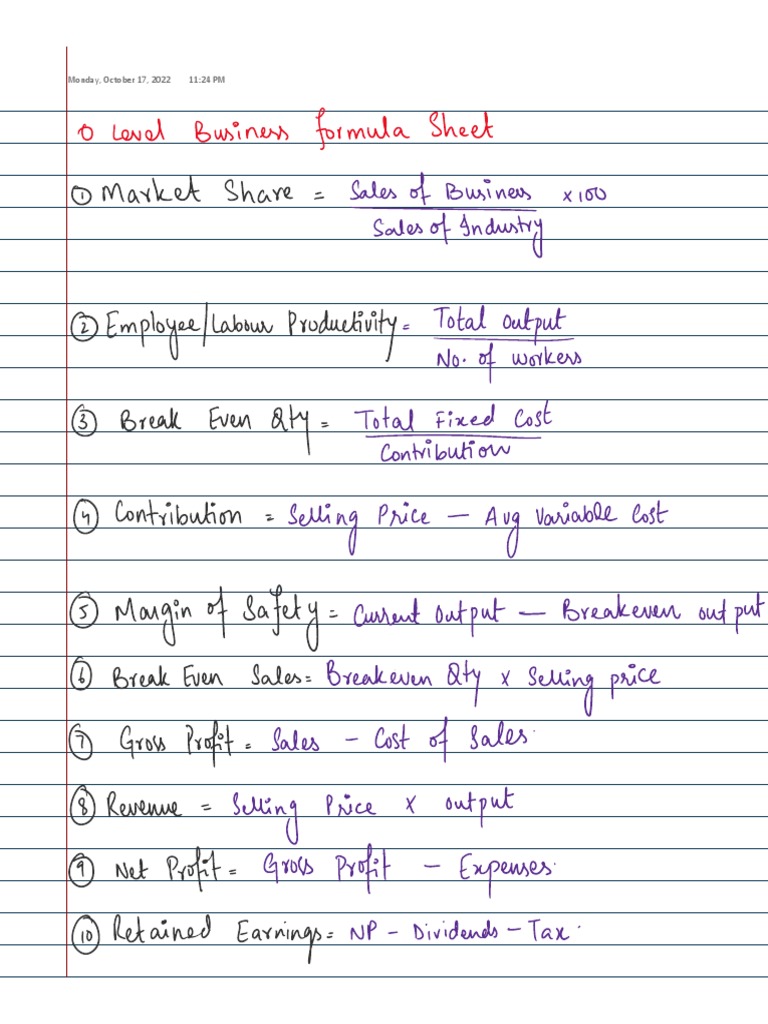 Monday, October 17, 2022 11:24 PM
O Level Business formula Sheet
① Market Share = Sales of Business × 100
Sales of Industry
② Employee/Labour Productivity = Total Output
No. of workers
③ Break Even Qty = Total Fixed Cost
Contribution
④ Contribution = Selling Price – Avg Variable Cost
⑤ Margin of Safety = Current Output – Breakeven output
⑥ Break Even Sales = Breakeven Qty × Selling price
⑦ Gross Profit = Sales – Cost of Sales.
⑧ Revenue = Selling Price × output
⑨ Net Profit = Gross Profit – Expenses.
⑩ Retained Earnings = NP – Dividends – Tax.